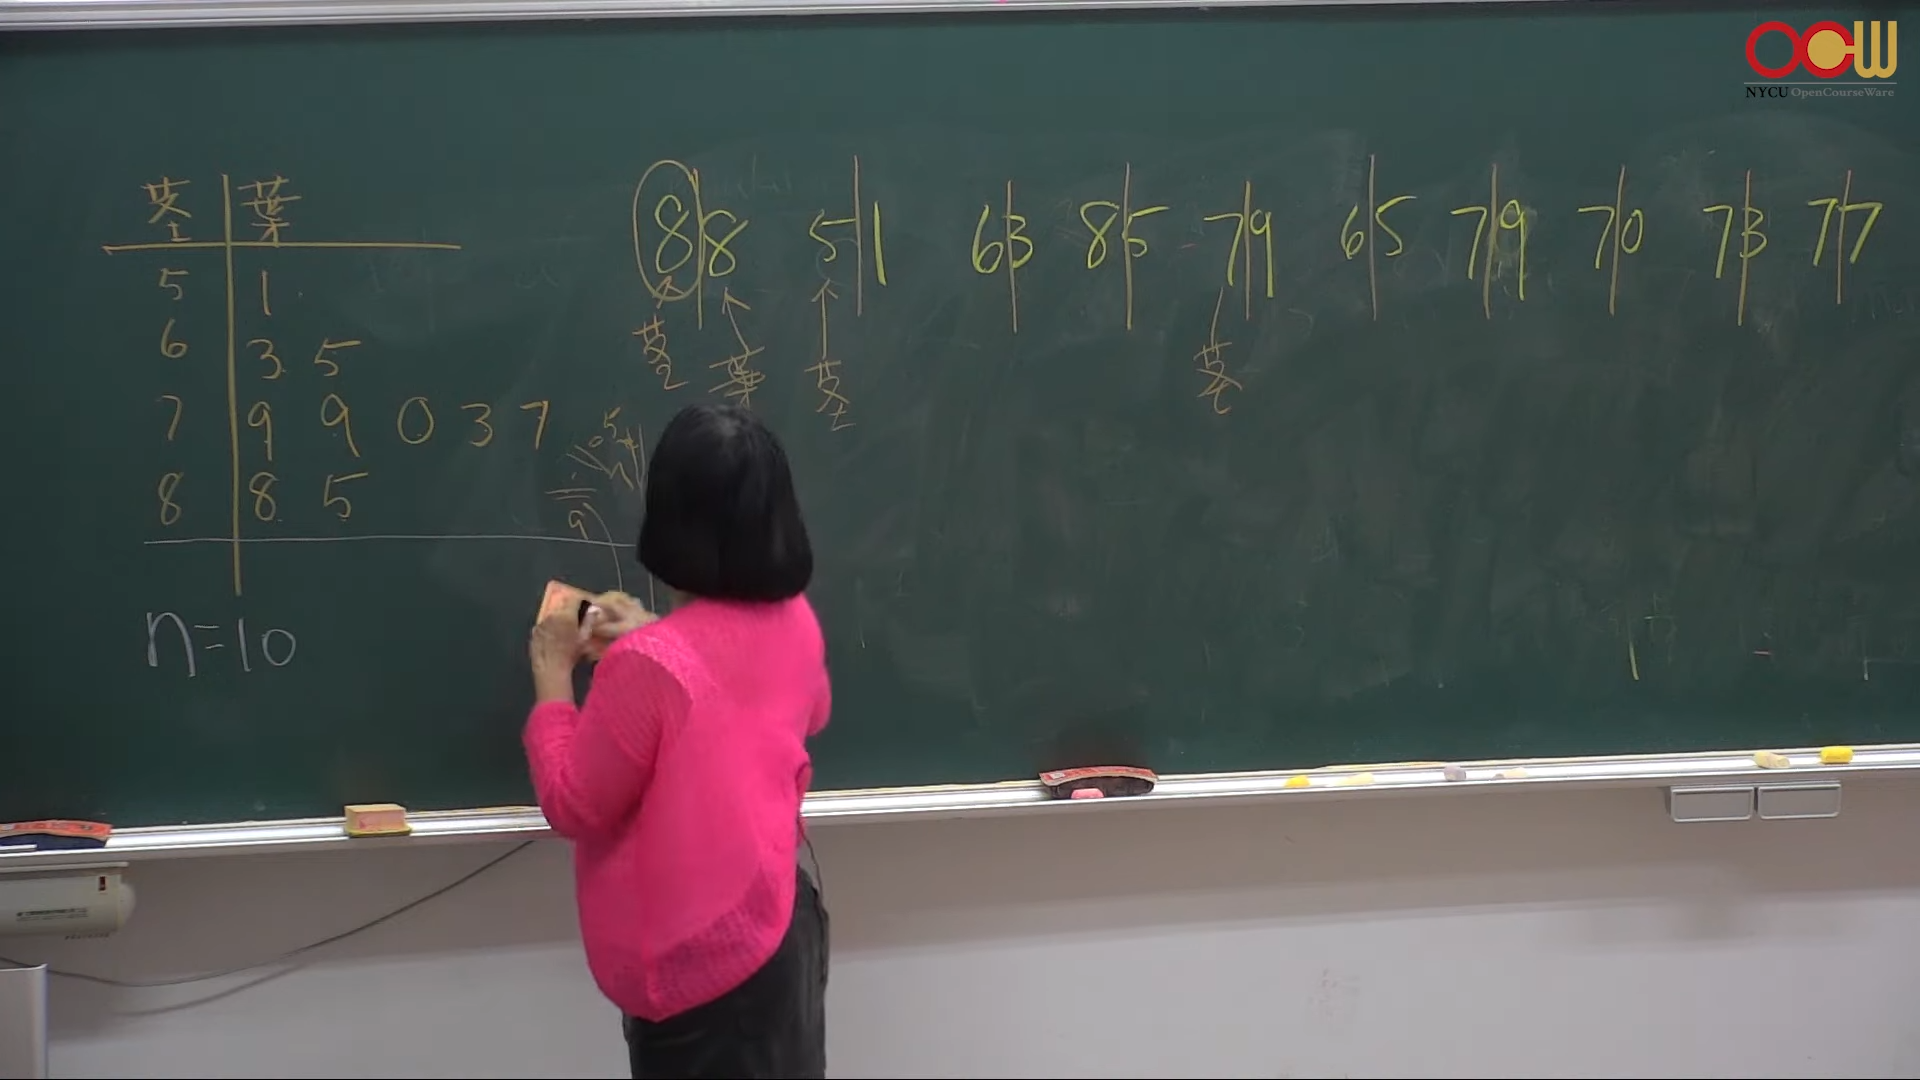 OCW
NYCU OpenCourseWare
莖 葉
5 1
6 3 5
7 9 9 0 3 7
8 8 5
n=10
88 51 63 85 79 65 79 70 73 77
莖 葉 莖
9